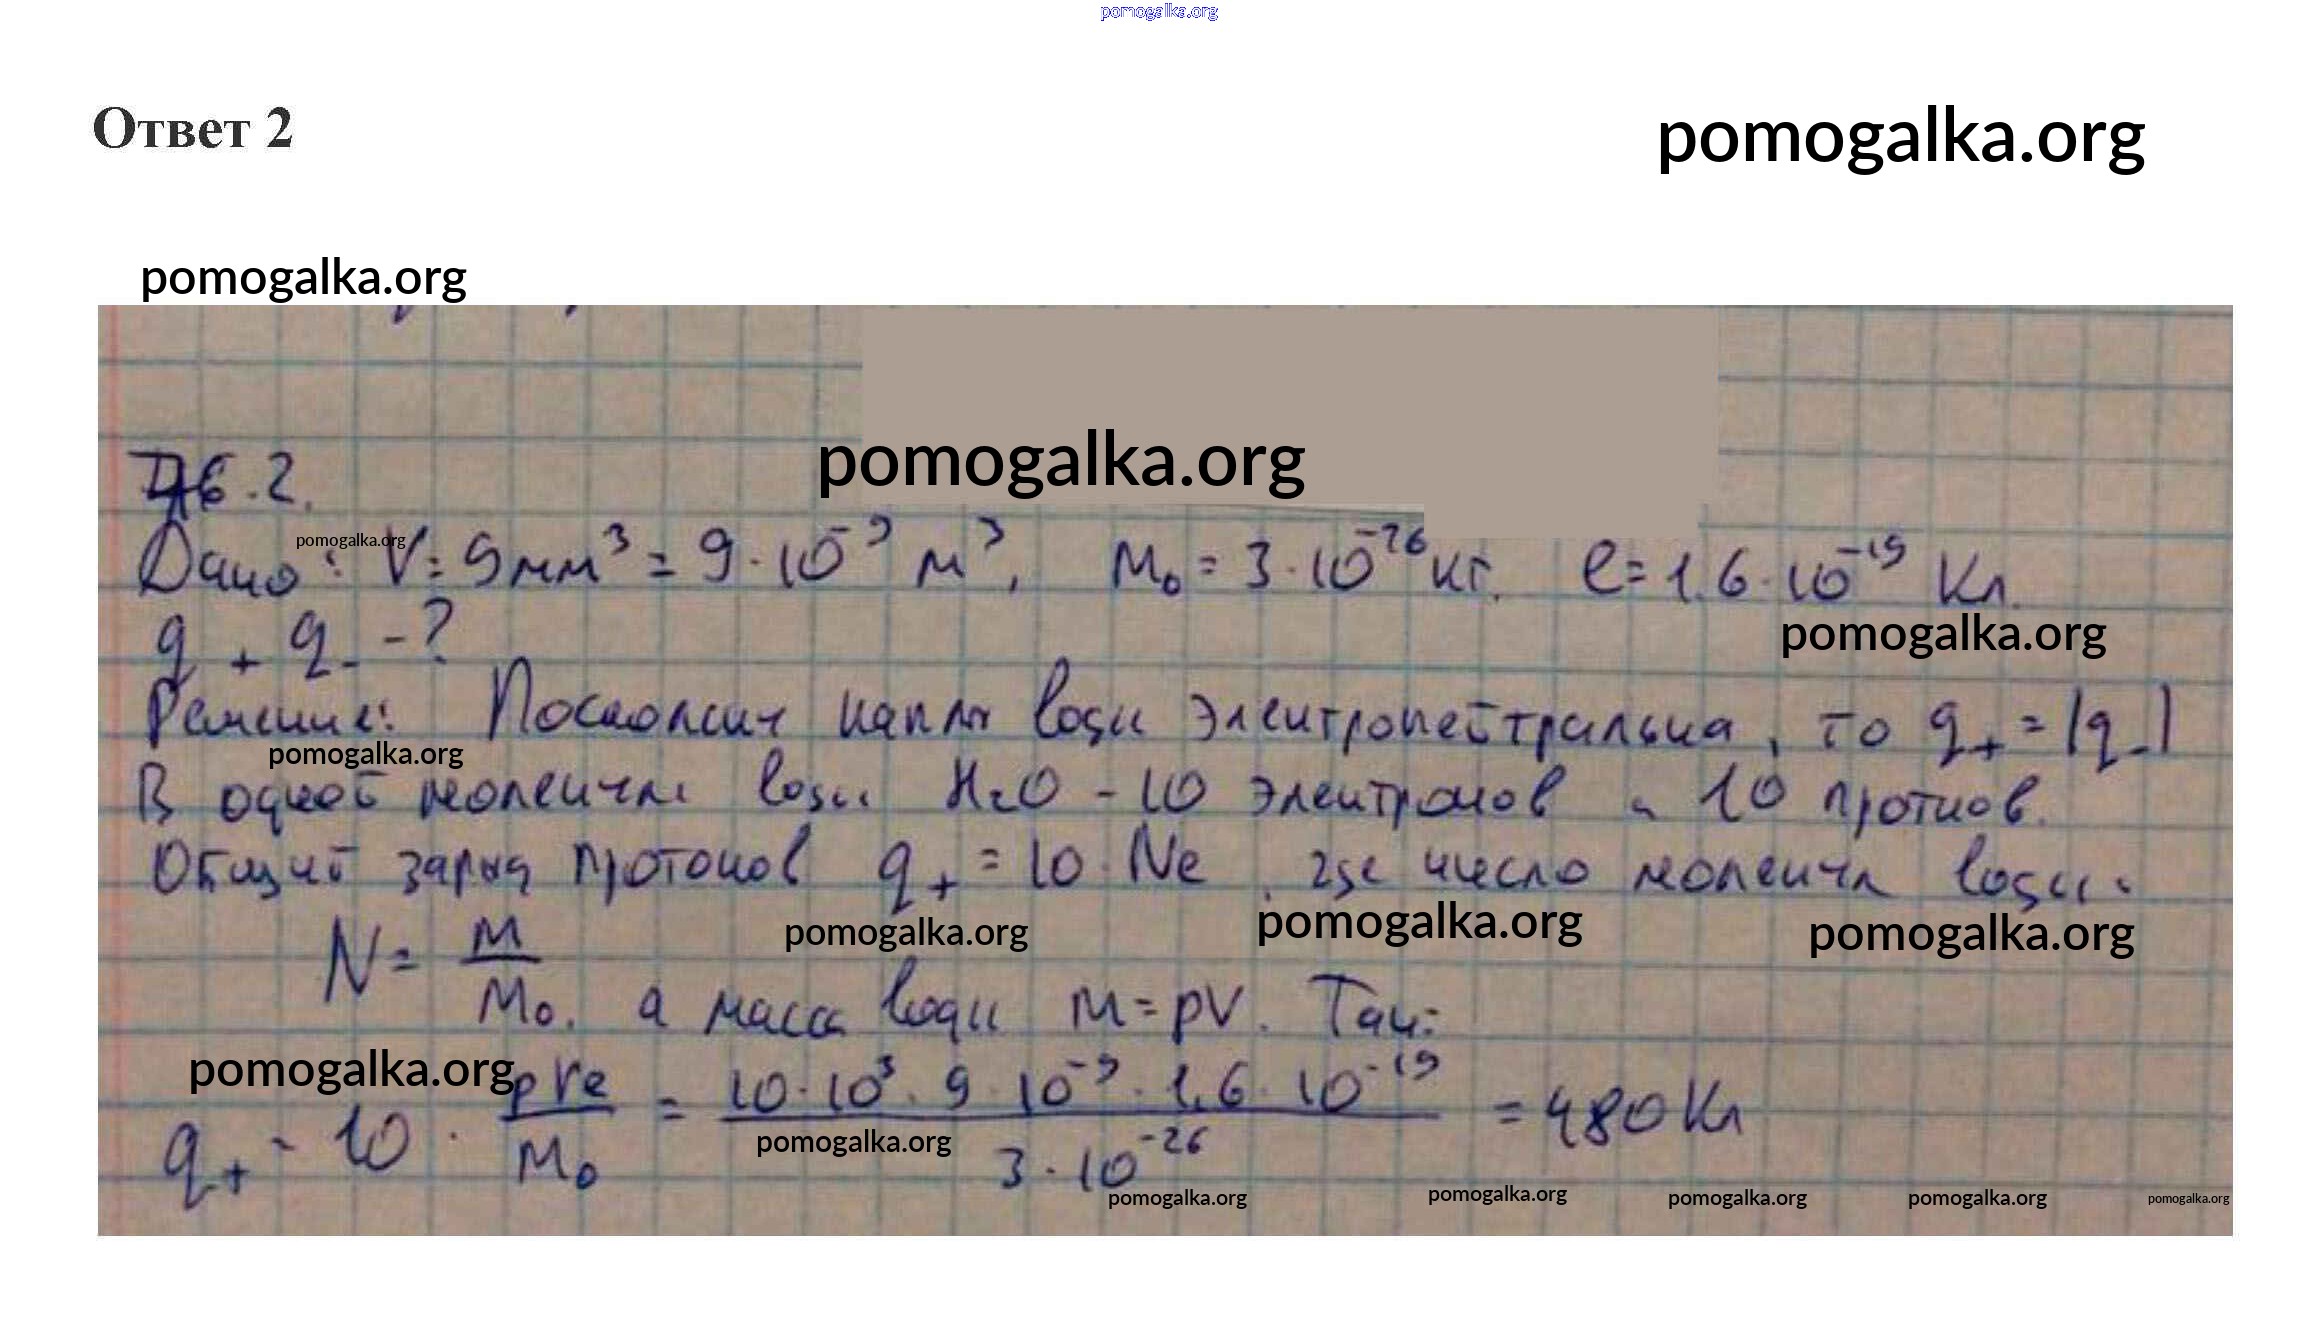 pomogalka.org
Ответ 2
pomogalka.org
pomogalka.org
pomogalka.org
2.
Дано: V = 9 мм³ = 9 · 10⁻⁹ м³, m₀ = 3 · 10⁻²⁶ кг. e = 1,6 · 10⁻¹⁹ Кл.
pomogalka.org
q₊ q₋ - ?
pomogalka.org
Решение: Поскольку капля воды электронейтральна, то q₊ = |q₋|
pomogalka.org
В одной молекуле воды H₂O - 10 электронов и 10 протнов.
Общий заряд протонов q₊ = 10 · Ne, где число молекул воды:
pomogalka.org pomogalka.org pomogalka.org
N = m/m₀, а масса воды m = ρV. Так:
pomogalka.org
q₊ = 10 · ρVe/m₀ = 10 · 10³ · 9 · 10⁻⁹ · 1,6 · 10⁻¹⁹ / 3 · 10⁻²⁶ = 480 Кл
pomogalka.org
pomogalka.org pomogalka.org pomogalka.org pomogalka.org pomogalka.org